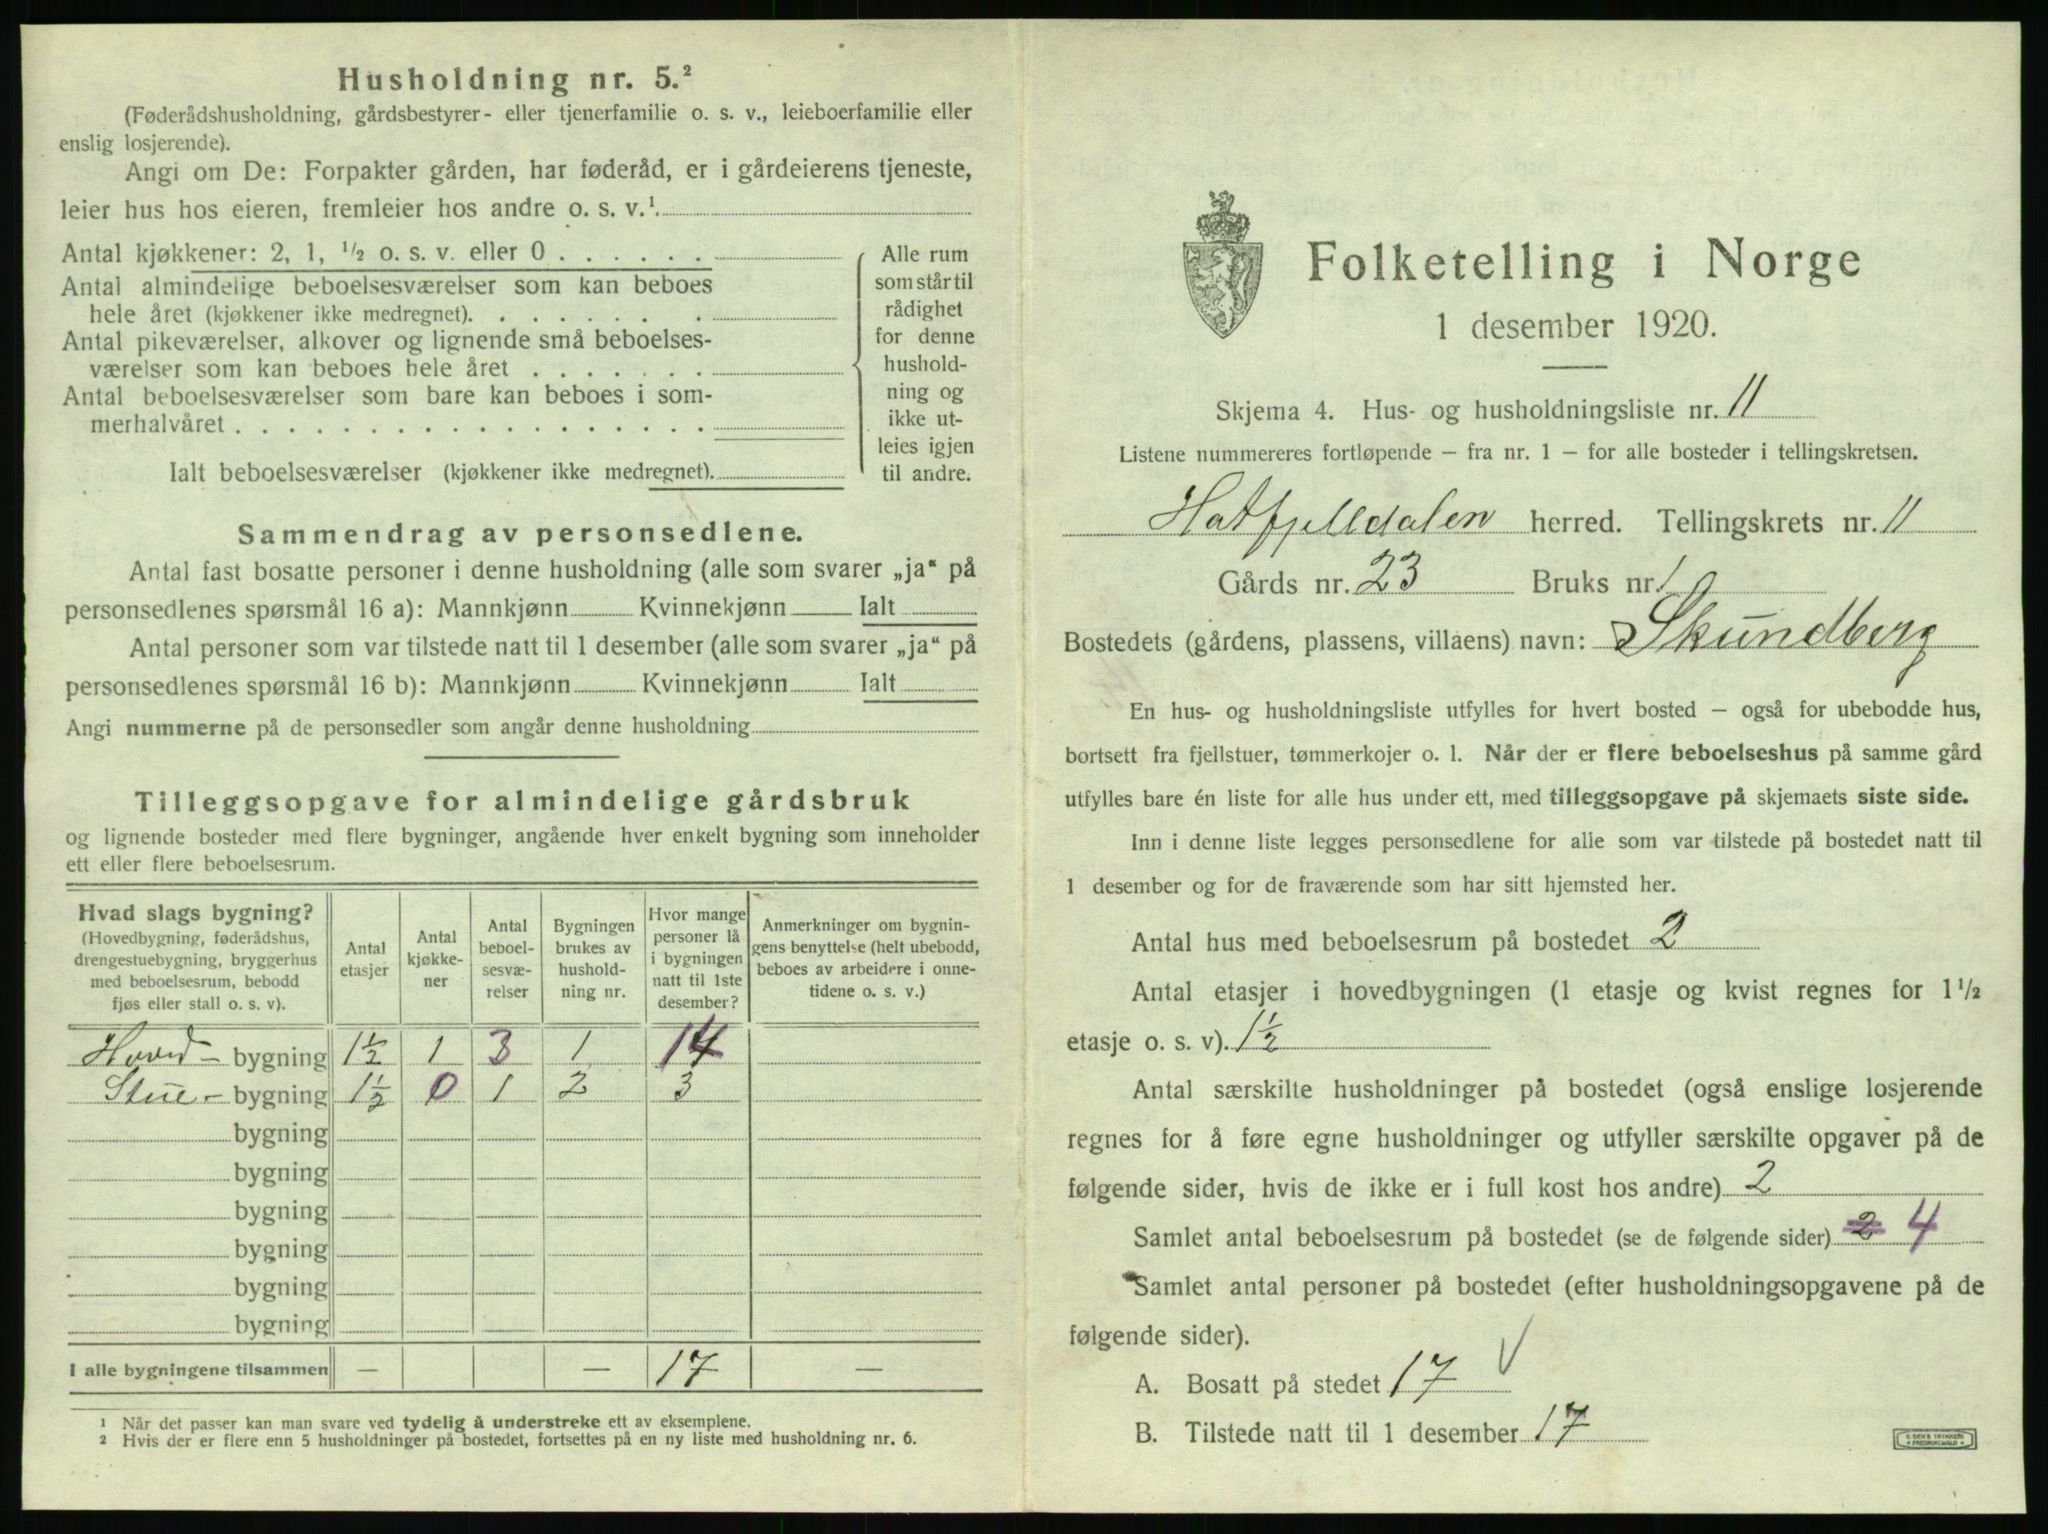 Husholdning nr. 5.²
(Føderådshusholdning, gårdsbestyrer- eller tjenerfamilie o. s. v., leieboerfamilie eller
enslig losjerende).
Angi om De: Forpakter gården, har føderåd, er i gårdeierens tjeneste,
leier hus hos eieren, fremleier hos andre o. s. v.¹.
Antal kjøkkener: 2, 1, ½ o. s. v. eller 0 . . . . . .
Antal almindelige beboelsesværelser som kan beboes
hele året (kjøkkener ikke medregnet). . . . . . . .
Antal pikeværelser, alkover og lignende små beboelses-
værelser som kan beboes hele året . . . . . . .
Antal beboelsesværelser som bare kan beboes i som-
merhalvåret . . . . . . . . . . . . . . . . . .
Alle rum
som står til
rådighet
for denne
hushold-
ning og
ikke ut-
leies igjen
til andre.
Ialt beboelsesværelser (kjøkkener ikke medregnet).
Sammendrag av personsedlene.
Antal fast bosatte personer i denne husholdning (alle som svarer „ja“ på
personsedlenes spørsmål 16 a): Mannkjønn Kvinnekjønn Ialt
Antal personer som var tilstede natt til 1 desember (alle som svarer „ja“ på
personsedlenes spørsmål 16 b): Mannkjønn Kvinnekjønn Ialt
Angi nummerne på de personsedler som angår denne husholdning
Tilleggsopgave for almindelige gårdsbruk
og lignende bosteder med flere bygninger, angående hver enkelt bygning som inneholder
ett eller flere beboelsesrum.
Hvad slags bygning?
(Hovedbygning, føderådshus,
drengestuebygning, bryggerhus
med beboelsesrum, bebodd
fjøs eller stall o. s. v).
Antal
etasjer
Antal
kjøkke-
ner
Antal
beboel-
sesvæ-
relser
Bygningen
brukes av
hushold-
ning nr.
Hvor mange
personer lå
i bygningen
natt til 1ste
desember?
Anmerkninger om bygnin-
gens benyttelse (helt ubebodd,
beboes av arbeidere i onne-
tidene o. s. v.)
Hoved- bygning 1½ 1 3 1 14
Stue- bygning 1½ 0 1 2 3
bygning
bygning
bygning
bygning
bygning
bygning
I alle bygningene tilsammen — — 17 —
¹ Når det passer kan man svare ved tydelig å understreke ett av eksemplene.
² Hvis der er flere enn 5 husholdninger på bostedet, fortsettes på en ny liste med husholdning nr. 6.
Folketelling i Norge
1 desember 1920.
Skjema 4. Hus- og husholdningsliste nr. 11
Listene nummereres fortløpende — fra nr. 1 — for alle bosteder i tellingskretsen.
Hatfjelldalen herred. Tellingskrets nr. 11
Gårds nr. 23 Bruks nr. 1
Bostedets (gårdens, plassens, villaens) navn: Skundberg
En hus- og husholdningsliste utfylles for hvert bosted — også for ubebodde hus,
bortsett fra fjellstuer, tømmerkojer o. l. Når der er flere beboelseshus på samme gård
utfylles bare én liste for alle hus under ett, med tilleggsopgave på skjemaets siste side.
Inn i denne liste legges personsedlene for alle som var tilstede på bostedet natt til
1 desember og for de fraværende som har sitt hjemsted her.
Antal hus med beboelsesrum på bostedet 2
Antal etasjer i hovedbygningen (1 etasje og kvist regnes for 1½
etasje o. s. v). 1½
Antal særskilte husholdninger på bostedet (også enslige losjerende
regnes for å føre egne husholdninger og utfyller særskilte opgaver på de
følgende sider, hvis de ikke er i full kost hos andre) 2
Samlet antal beboelsesrum på bostedet (se de følgende sider) 2 4
Samlet antal personer på bostedet (efter husholdningsopgavene på de
følgende sider).
A. Bosatt på stedet 17 √
B. Tilstede natt til 1 desember 17